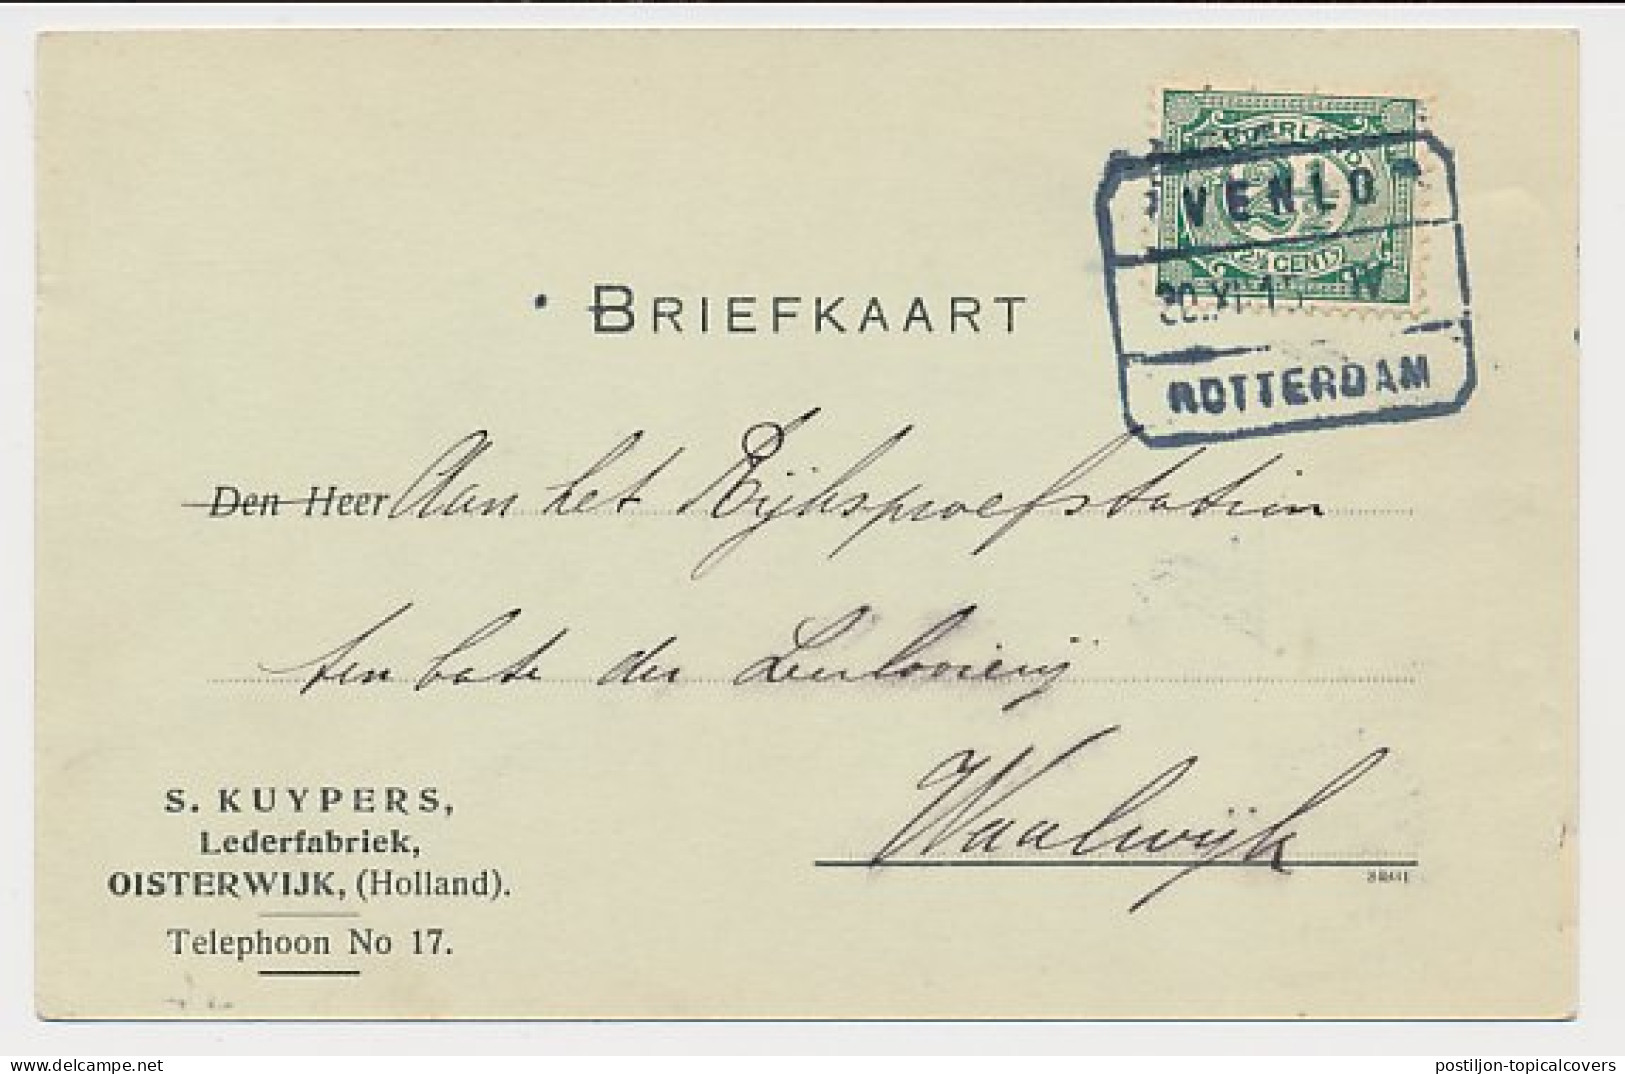 NEDERLAND
2½
2½ CENT
VENLO
IV
ROTTERDAM
BRIEFKAART
Den Heer Aan het Rijksproefstation
ten bate der Leerlooierij
Waalwijk
S. KUYPERS,
Lederfabriek,
OISTERWIJK, (Holland).
Telephoon No 17.
www.delcampe.net
postiljon-topicalcovers